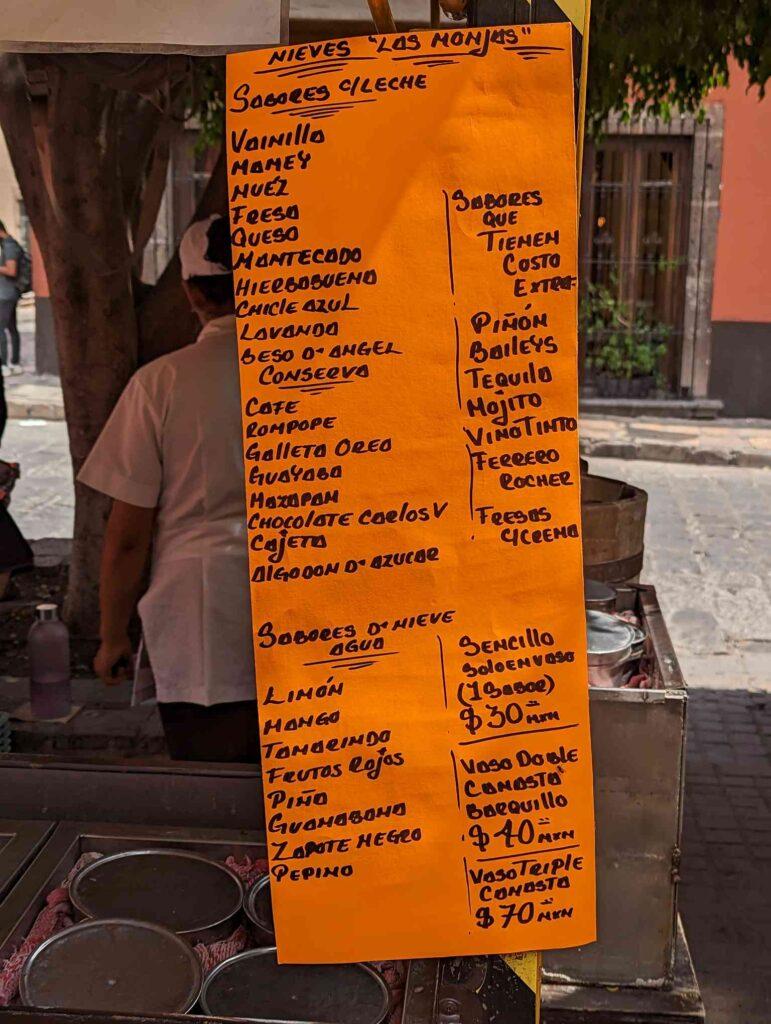 NIEVES "LAS MONJAS"
SABORES C/LECHE
VAINILLA
MAMEY
NUEZ
FRESA
QUESO
MANTECADO
HIERBABUENA
CHICLE AZUL
LAVANDA
BESO D' ANGEL
CONSERVA
CAFE
ROMPOPE
GALLETA OREO
GUAYABA
MAZAPAN
CHOCOLATE CARLOS V
CAJETA
ALGODON D' AZUCAR
SABORES
QUE
TIENEN
COSTO
EXTRA
PIÑÓN
BAILEYS
TEQUILA
MOJITO
VINO TINTO
FERRERO
ROCHER
FRESAS
C/CREMA
SABORES D' NIEVE
AGUA
LIMÓN
MANGO
TAMARINDO
FRUTOS ROJOS
PIÑA
GUANABANA
ZAPOTE NEGRO
PEPINO
SENCILLO
SOLO EN VASO
(1 SABOR)
$30 MXN
VASO DOBLE
CANASTA
BARQUILLO
$40 MXN
VASO TRIPLE
CANASTA
$70 MXN